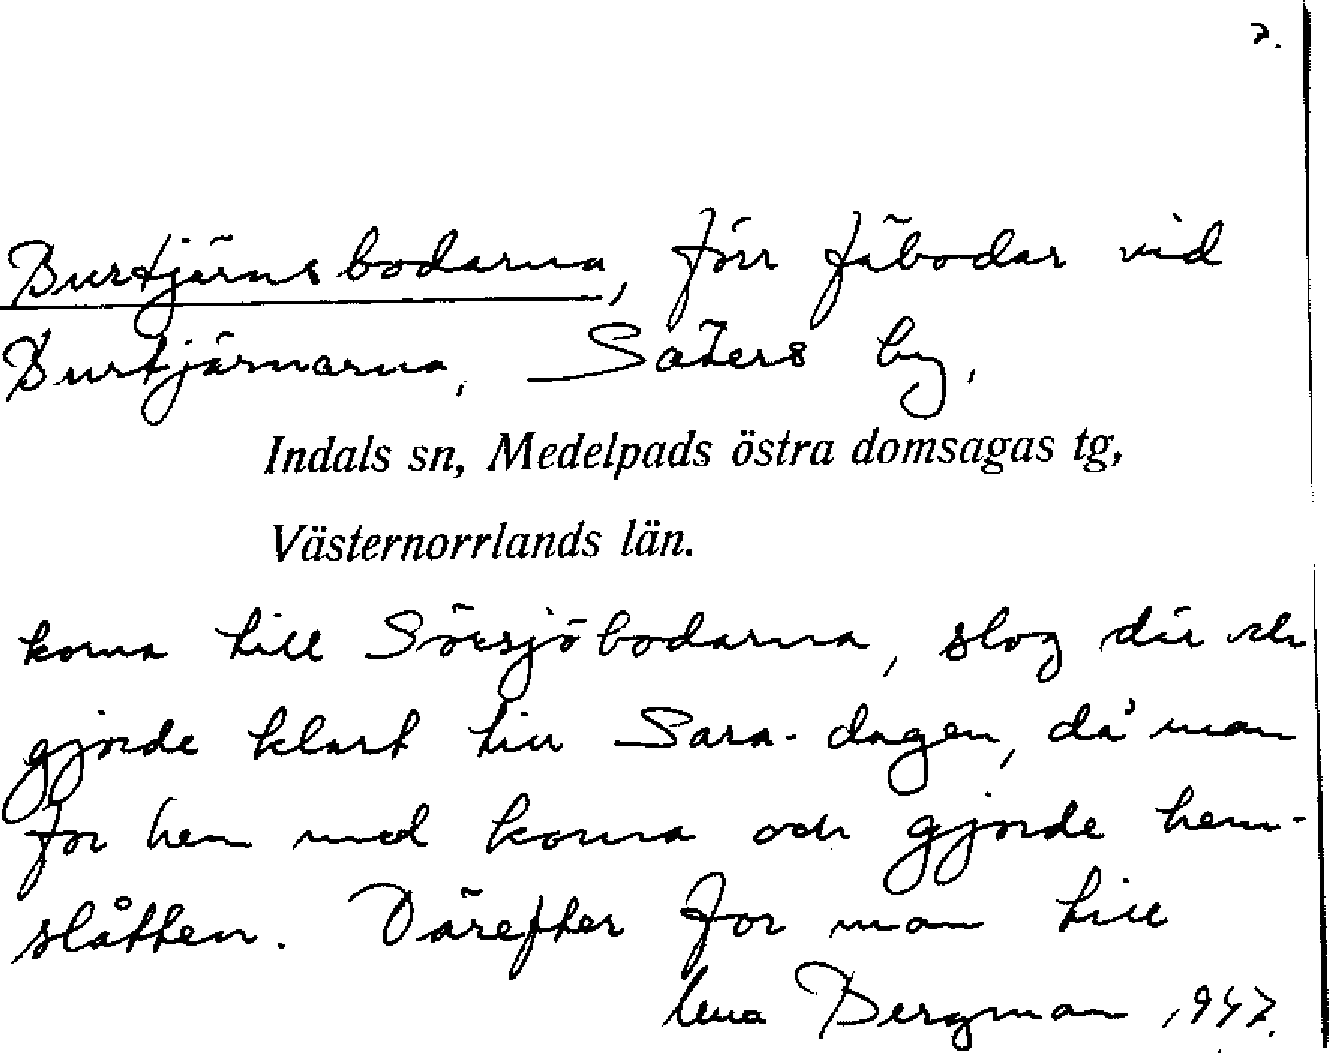 2.
Burtjärnsbodarna, förr fäbodar vid
Burtjärnarna, Säters by,
Indals sn, Medelpads östra domsagas tg,
Västernorrlands län.
korna till Sörsjöbodarna, slog där och
gjorde klart till Sara-dagen, då man
for hem med korna och gjorde hem-
slåtten. Därefter for man till
Lena Bergman 1947.